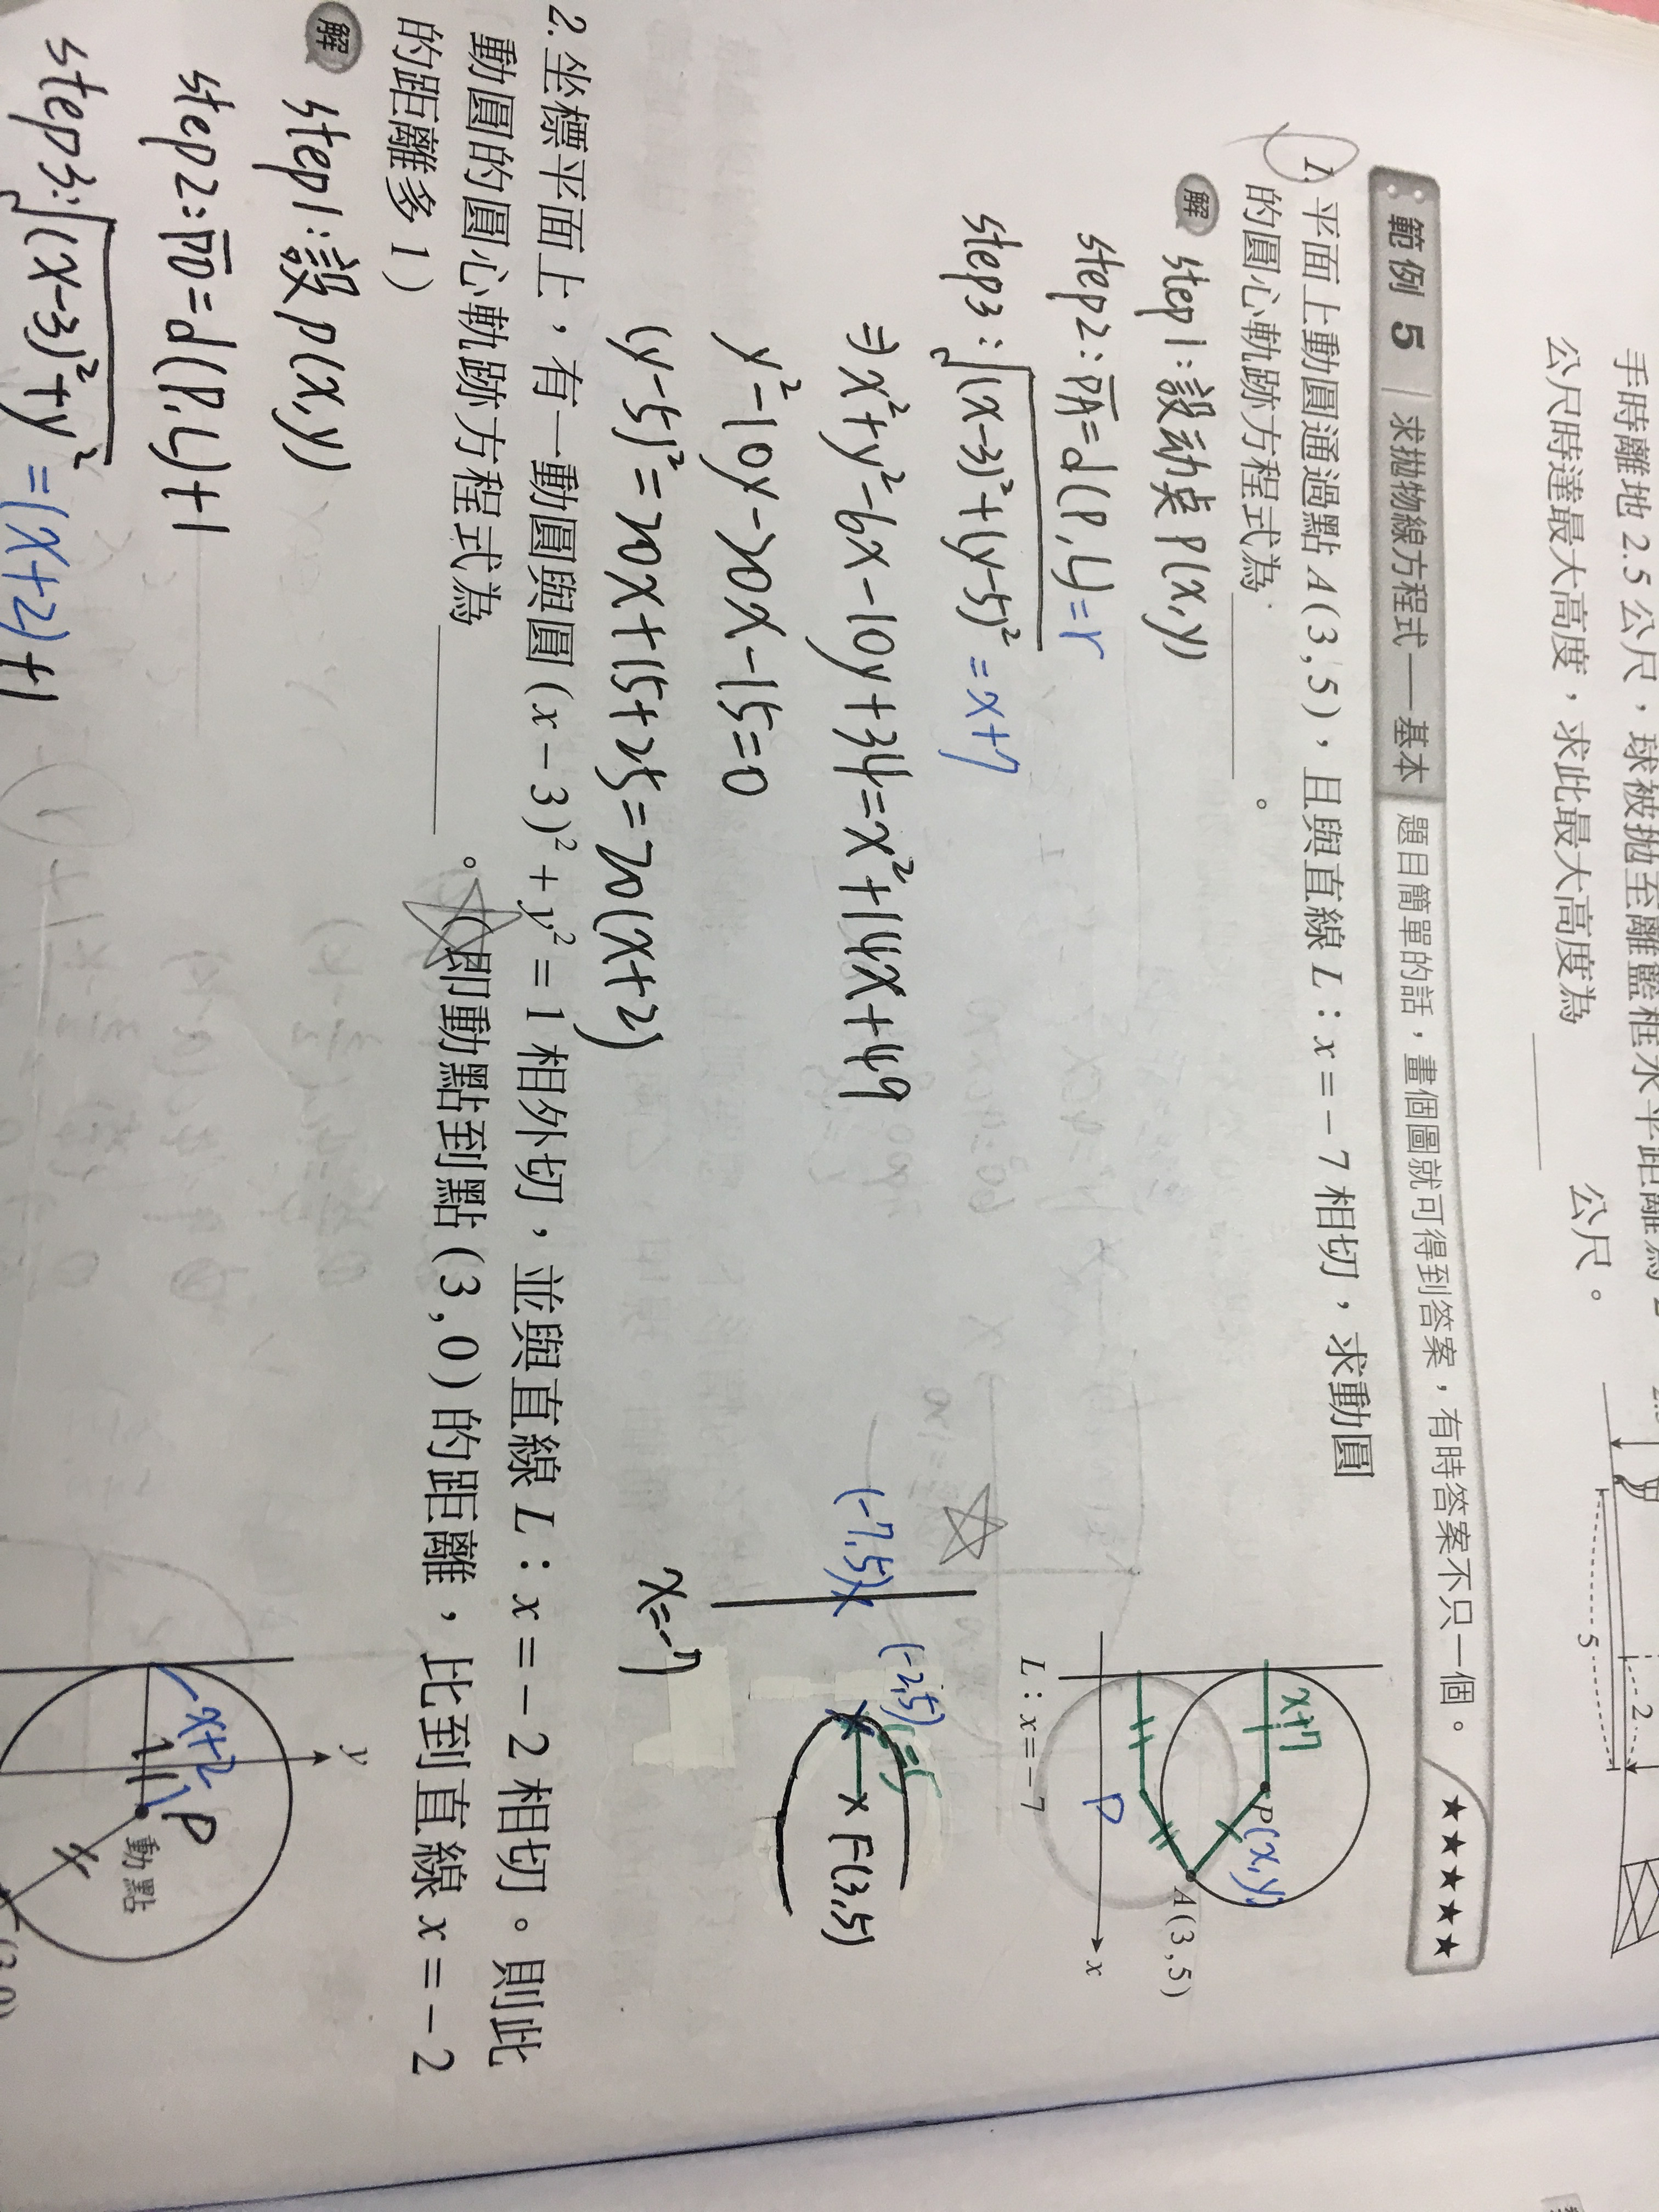 手時離地 2.5 公尺，球被拋至離籃框水平距離為 2
公尺時達最大高度，求此最大高度為 公尺。
2
5
範例 5 求拋物線方程式——基本 題目簡單的話，畫個圖就可得到答案，有時答案不只一個。 ★★★★★
1. 平面上動圓通過點 A(3,5)，且與直線 L：x=-7 相切，求動圓
的圓心軌跡方程式為 。
解 step1:設动点 P(x,y)
step2: PA=d(P,L)=r
step3: √(x-3)²+(y-5)² = x+7
⇒ x²+y²-6x-10y+34=x²+14x+49
y²-10y-20x-15=0
(y-5)²=20x+15+25=20(x+2)
x+7
P(x,y)
A(3,5)
P
x
L：x=-7
(-7,5)
(-2,5)
c=5
F(3,5)
x=-7
2. 坐標平面上，有一動圓與圓(x-3)²+y²=1相外切，並與直線 L：x=-2相切。則此
動圓的圓心軌跡方程式為 。(即動點到點(3,0)的距離，比到直線 x=-2
的距離多 1)
解 step1:設P(x,y)
step2: PO=d(P,L)+1
step3: √(x-3)²+y² =(x+2)+1
y
x+2
P
動點
(3,0)